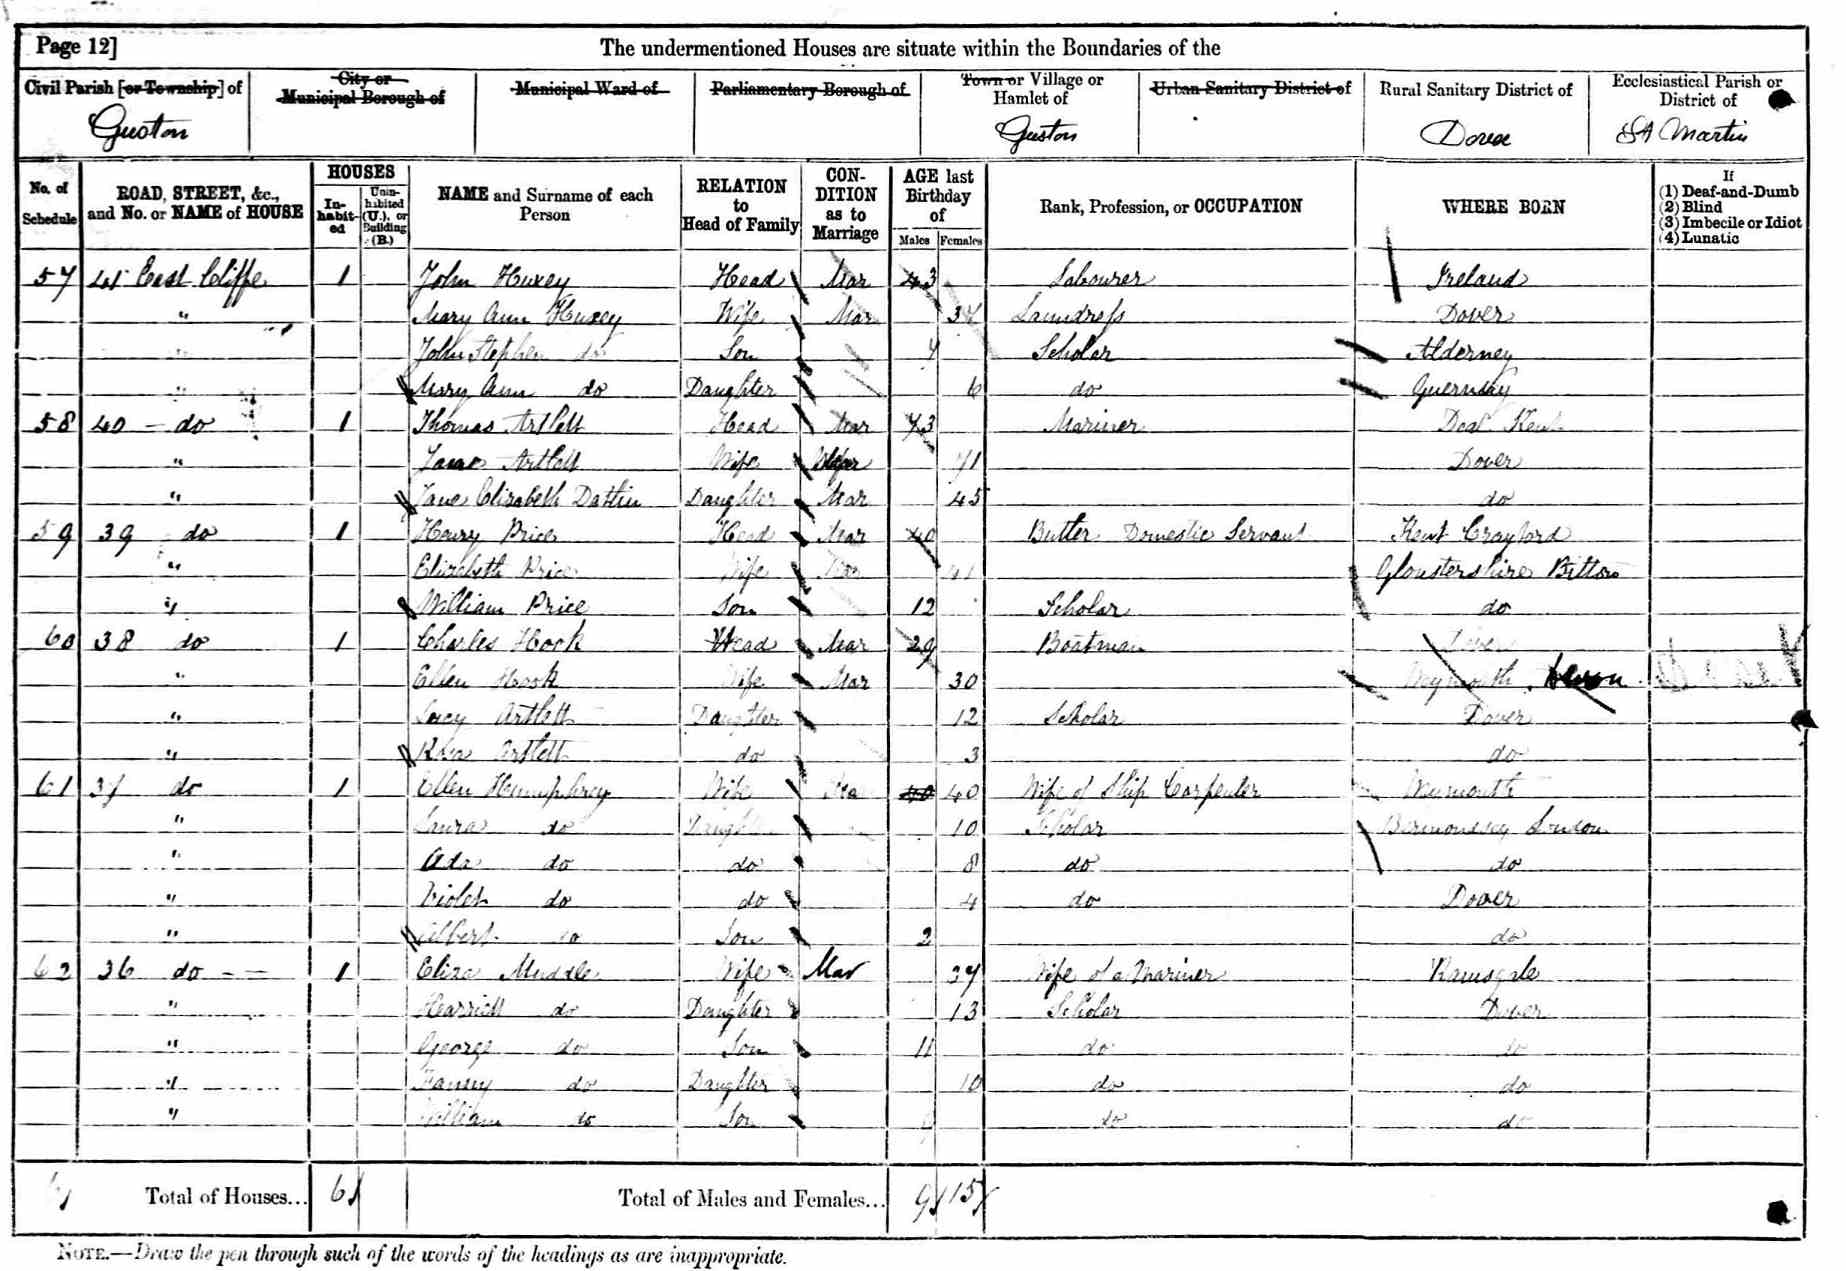 Page 12] The undermentioned Houses are situate within the Boundaries of the
Civil Parish [or Township] of City or Municipal Borough of Municipal Ward of Parliamentary Borough of Town or Village or Hamlet of Urban Sanitary District of Rural Sanitary District of Ecclesiastical Parish or District of
Guston Guston Dover St Martin
No. of Schedule ROAD, STREET, &c., and No. or NAME of HOUSE HOUSES In-habit-ed Unin-habited (U.), or Building (B.) NAME and Surname of each Person RELATION to Head of Family CON-DITION as to Marriage AGE last Birthday of Males Females Rank, Profession, or OCCUPATION WHERE BORN If (1) Deaf-and-Dumb (2) Blind (3) Imbecile or Idiot (4) Lunatic
57 41 East Cliffe 1 John Huxey Head Mar 43 Labourer Ireland
" Mary Ann Huxey Wife Mar 37 Laundress Dover
" John Stephen do Son 7 Scholar Alderney
" Mary Ann do Daughter 6 do Guernsey
58 40 - do 1 Thomas Artlett Head Mar 73 Mariner Deal Kent
" Jane Artlett Wife 71 Dover
" Jane Elizabeth Datlin Daughter Mar 45 do
59 39 do 1 Henry Price Head Mar 40 Butler Domestic Servant Kent Crayford
" Elizabeth Price Wife Mar 41 Gloustershire Bitton
" William Price Son 12 Scholar do
60 38 do 1 Charles Hook Head Mar 29 Boatman Dover
" Ellen Hook Wife Mar 30 Weymouth Devon
" Lucy Artlett Daughter 12 Scholar Dover
" Rosa Artlett do 3 do
61 37 do 1 Ellen Humphrey Wife Mar 40 40 Wife of Ship Carpenter Weymouth
" Laura do Daughter 10 Scholar Bermondsey London
" Ada do do 8 do do
" Violet do do 4 do Dover
" Albert do Son 2 do
62 36 do - - 1 Eliza Muddle Wife Mar 37 Wife of a Mariner Ramsgate
" Harriett do Daughter 13 Scholar Dover
" George do Son 11 do do
" Fanny do Daughter 10 do do
" William do Son do do
Total of Houses... 6 Total of Males and Females... 9 15
NOTE.—Draw the pen through such of the words of the headings as are inappropriate.